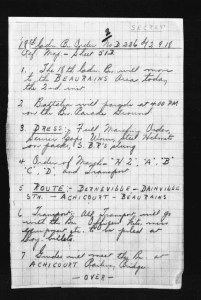 SECRET
18th Cdn Bn. Order No D 236 2.9.18
Ref. Map - Sheet 51B
1. The 18th Cdn Bn will move
to the BEAURAINS Area today
the 2nd inst
2. Battalion will parade at
on Bn Parade Ground
3. DRESS: Full Marching Order,
Steel Helmet
on pack, S.B.R's slung
4. Order of March "H.Q." "A" "B"
"C" "D" and Transport
5 ROUTE: - BERNEVILLE - DAINVILLE
STN. - ACHICOURT - BEAURAINS
6 Transport: All Transport will go
with the
to be piled at
Coy. billets
7 Guides will meet the Bn at
ACHICOURT Railway Bridge
- OVER -